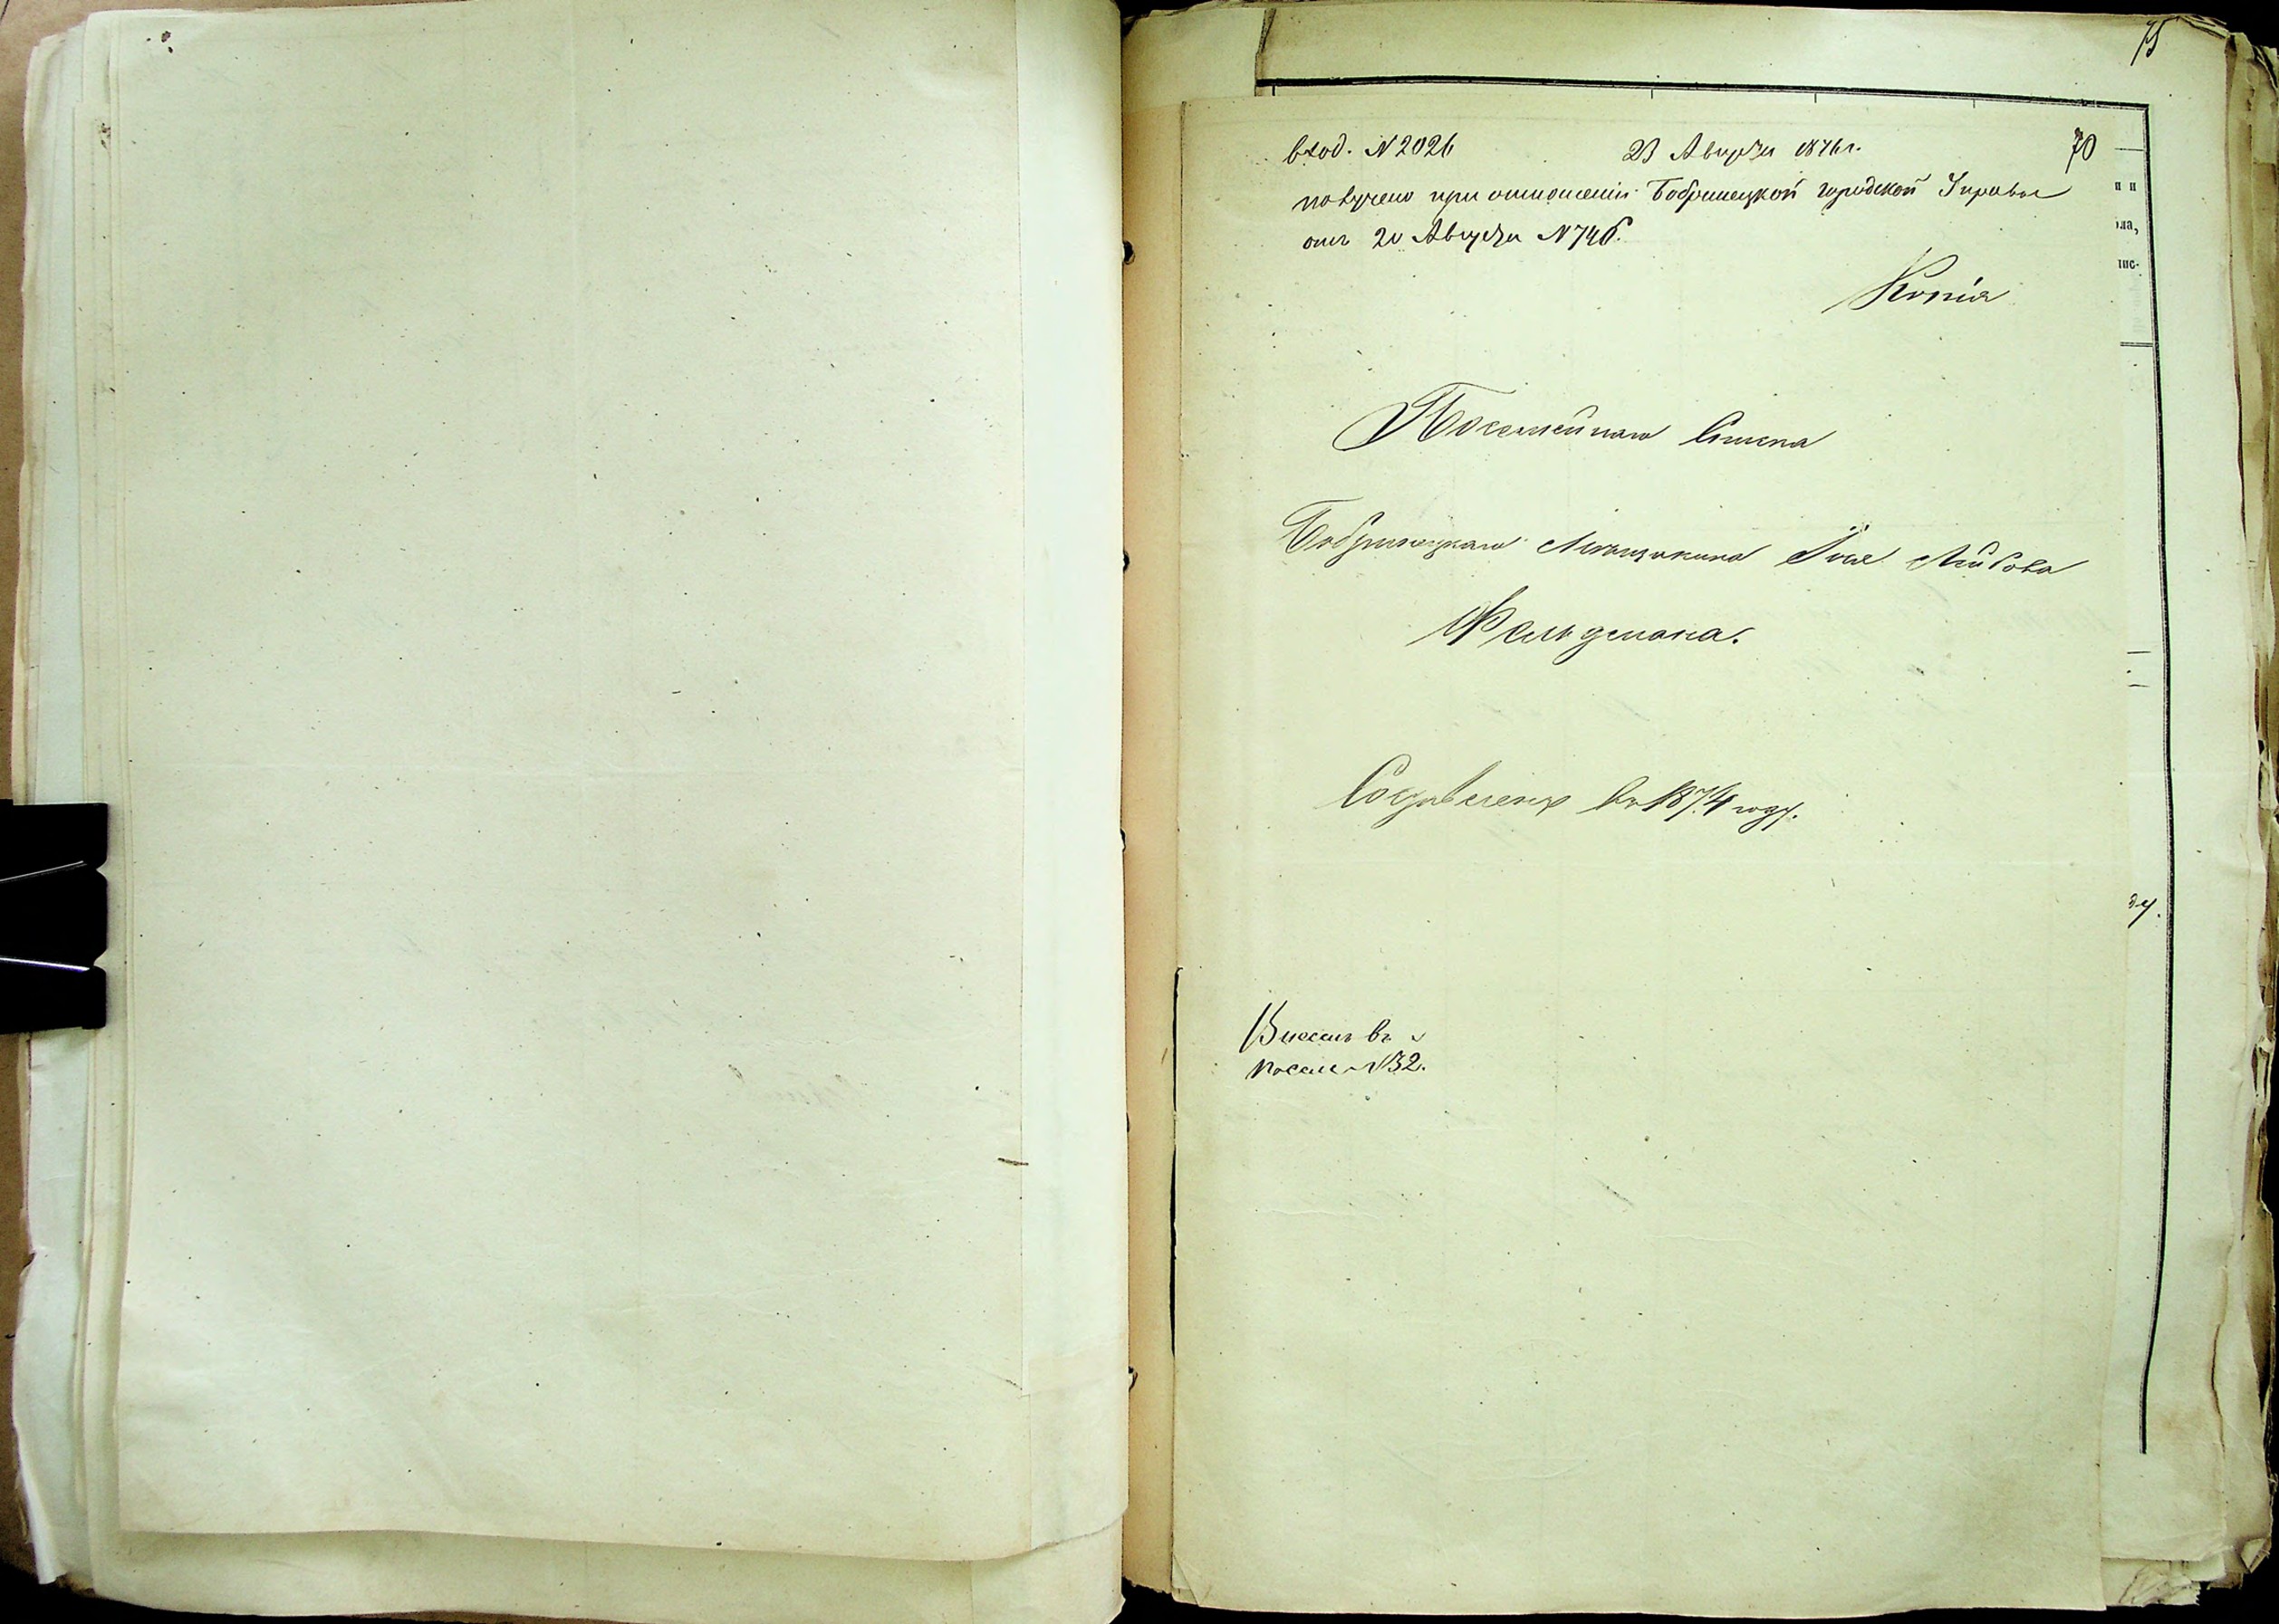 75
вход. № 2026 23 Августа 1876 г. 70
получено при отношении Бобринецкой городской Управы
отъ 20 Августа № 746.
Копія
Посемейнаго Списка
Бобринецкаго Мѣщанина Лейбова
Фельдмана.
Составленъ въ 1874 году.
Внесенъ въ
посем. № 32.
ла,
тис-
ду.